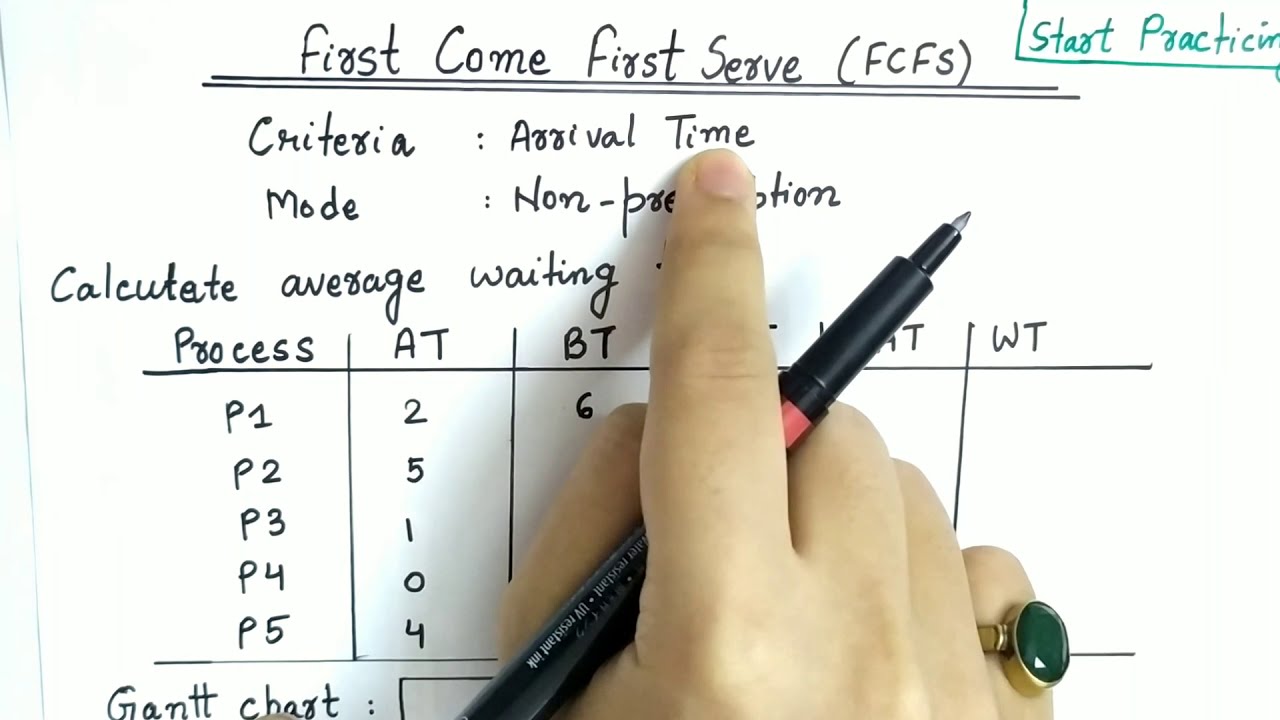 First Come First Serve (FCFS)
Start Practicin
Criteria : Arrival Time
Mode : Non-pre ption
Calculate average waiting
Process AT BT AT WT
P1 2 6
P2 5
P3 1
P4 0
P5 4
Gantt chart :
water resistant • UV resistant ink